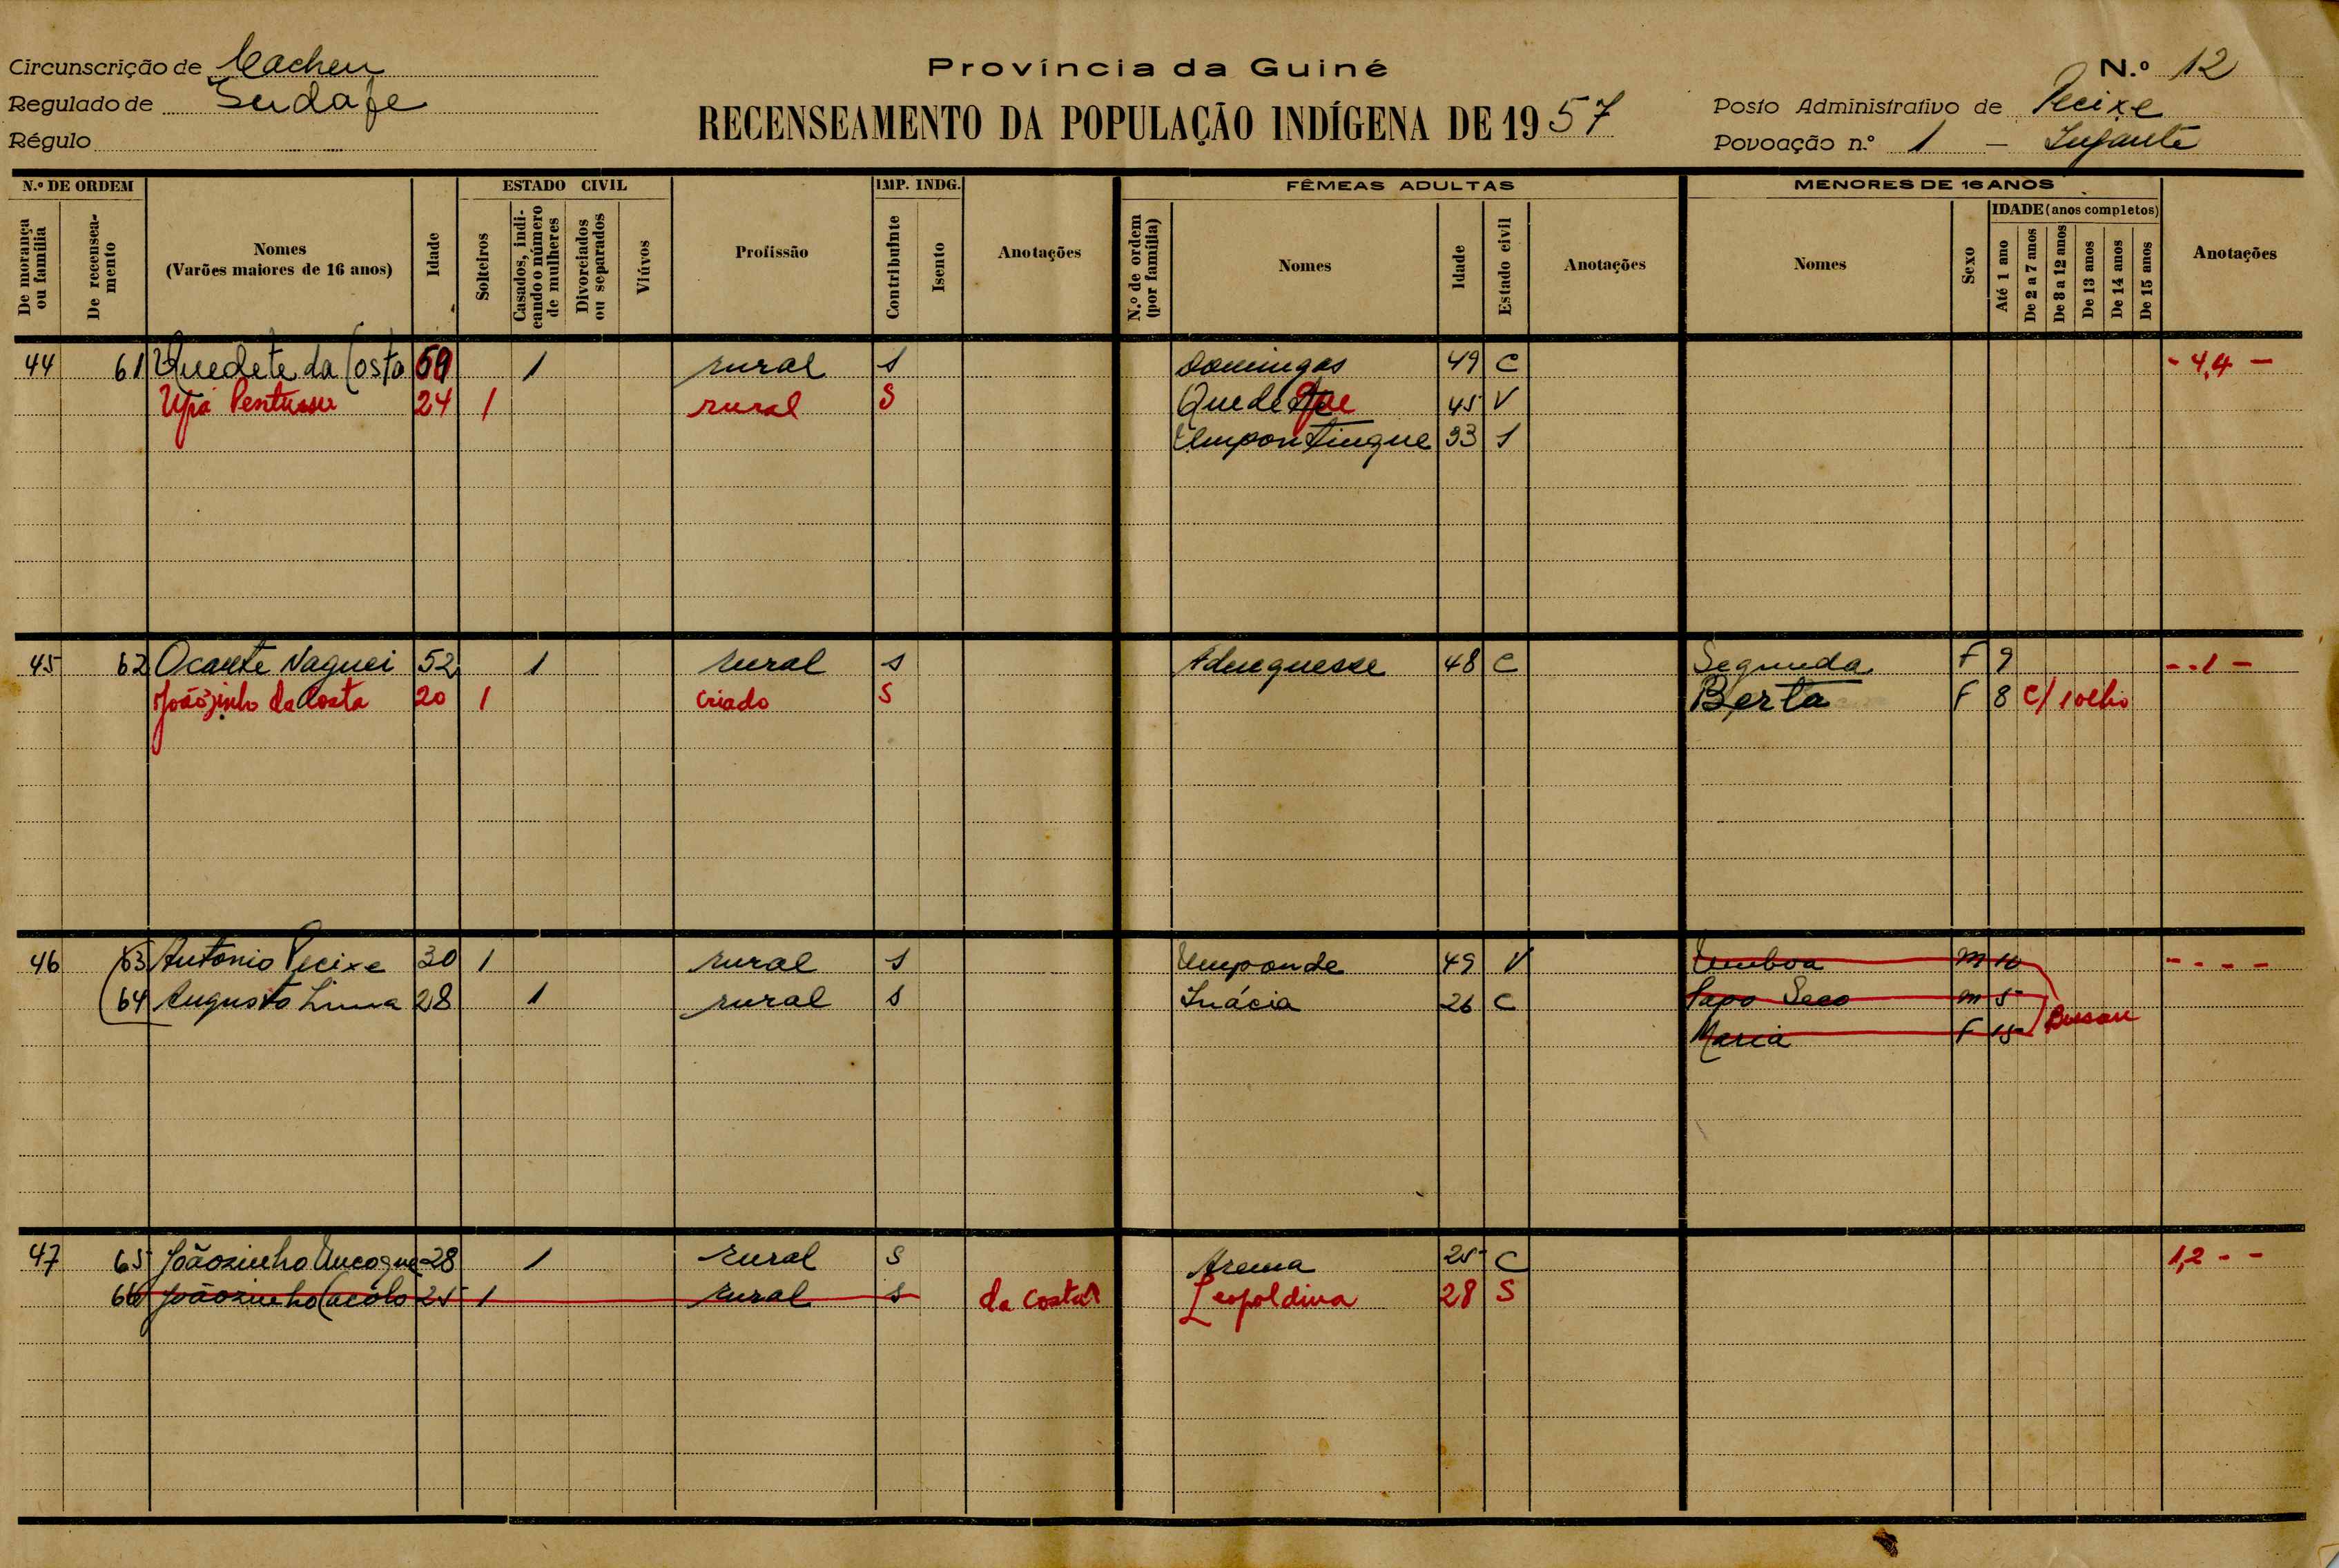 Circunscrição de Cacheu
Regulado de Sudafe
Régulo
Província da Guiné
RECENSEAMENTO DA POPULAÇÃO INDÍGENA DE 1957
N.º 12
Posto Administrativo de Pecixe
Povoação n.º 1 - Infante
N.º DE ORDEM
De morança ou família
De recenseamento
Nomes
(Varões maiores de 16 anos)
Idade
ESTADO CIVIL
Solteiros
Casados, indicando o número de mulheres
Divorciados ou separados
Viúvos
Profissão
IMP. INDG.
Contribuinte
Isento
Anotações
FÊMEAS ADULTAS
N.º de ordem (por família)
Nomes
Idade
Estado civil
Anotações
MENORES DE 16 ANOS
Nomes
Sexo
IDADE (anos completos)
Até 1 ano
De 2 a 7 anos
De 8 a 12 anos
De 13 anos
De 14 anos
De 15 anos
Anotações
44 61 Quedete da Costa 1 rural S Domingas 49 C - 4,4 -
Upa 24 1 rural S 45 V
Umpontingue 33 S
45 62 Ocante Naguei 52 1 rural S Aduquesse 48 C Segunda F 9 - - 1 -
Joãozinho da Costa 20 1 criado S Berta F 8 c/
46 63 Antonio Pecixe 30 1 rural S Umponde 49 V Umboa M - - - -
64 Augusto Lima 28 1 rural S Inácia 26 C Papo Seco M 5
Maria F 15
47 65 Joãozinho Uncogue 28 1 rural S Arema 25 C 1,2 - -
66 Joãozinho Cacolo 25 1 rural S da Costa Leopoldina 28 S